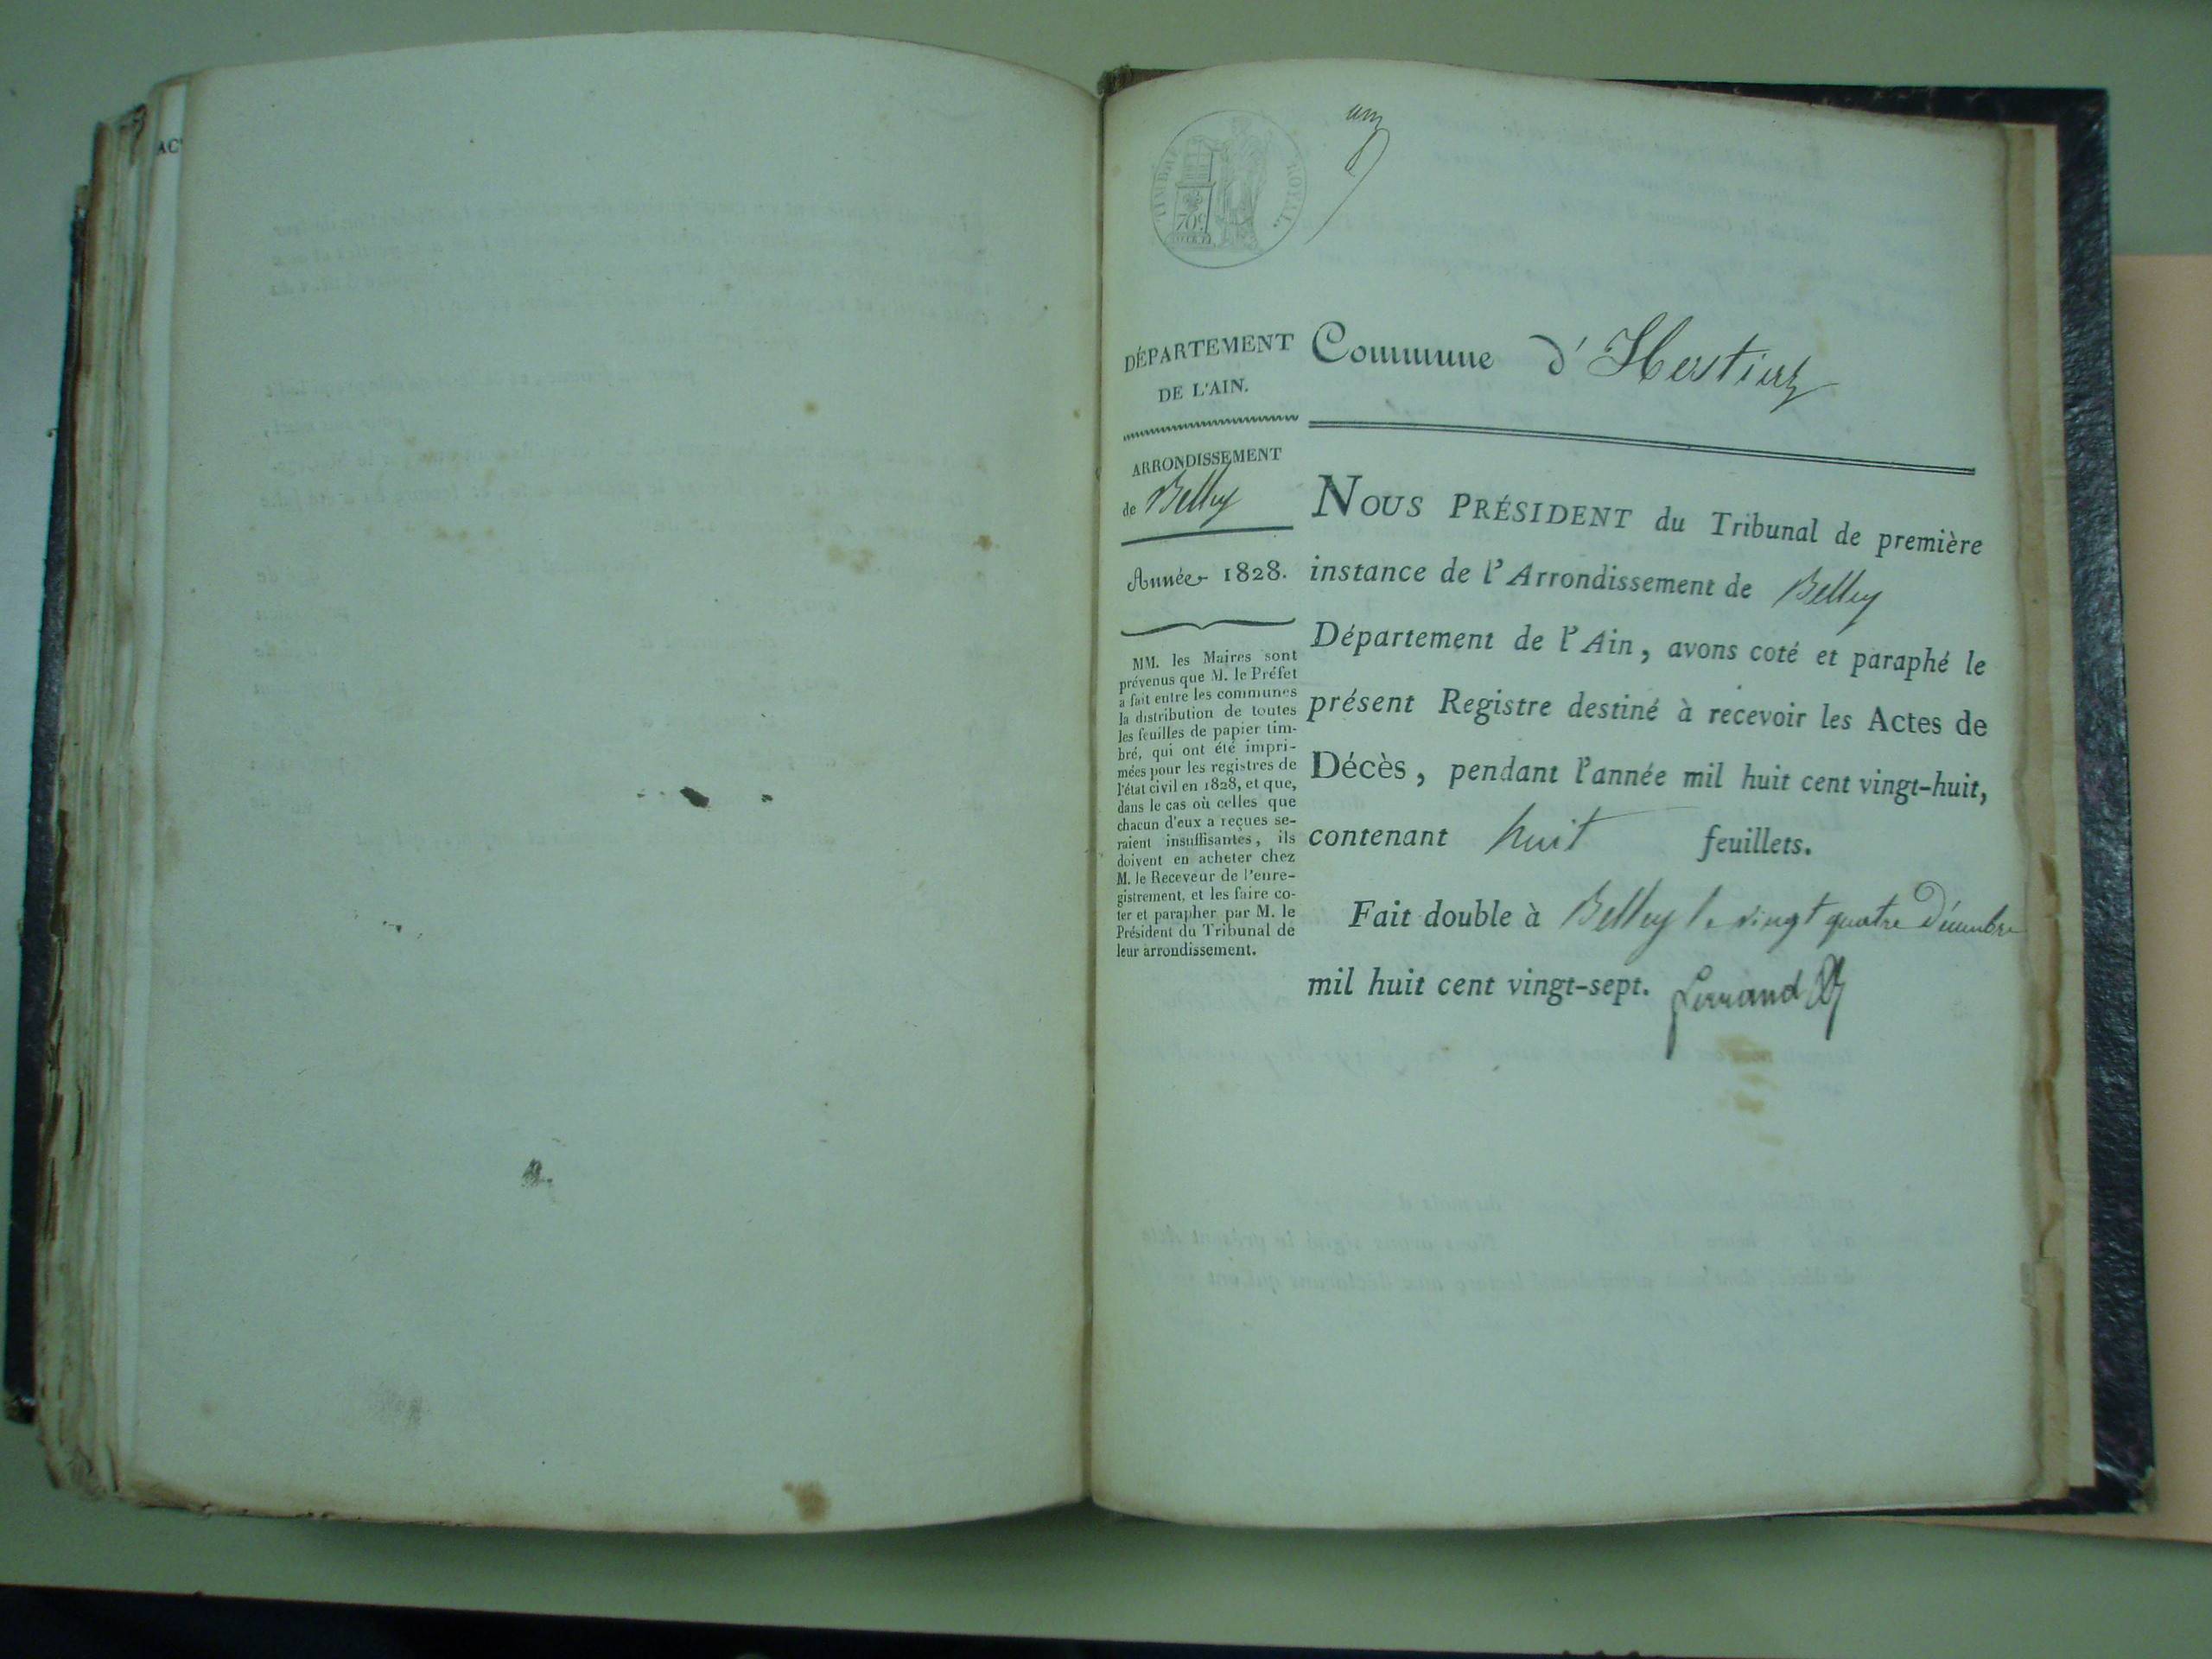 AC
TIMBRE ROYAL.
70c
un
DÉPARTEMENT
DE L'AIN.
ARRONDISSEMENT
de Belley
Année 1828.
MM. les Maires sont
prévenus que M. le Préfet
a fait entre les communes
la distribution de toutes
les feuilles de papier tim-
bré, qui ont été impri-
mées pour les registres de
l'état civil en 1828, et que,
dans le cas où celles que
chacun d'eux a reçues se-
raient insuffisantes, ils
doivent en acheter chez
M. le Receveur de l'enre-
gistrement, et les faire co-
ter et parapher par M. le
Président du Tribunal de
leur arrondissement.
Commune d'Hostiaz
NOUS PRÉSIDENT du Tribunal de première
instance de l'Arrondissement de Belley
Département de l'Ain, avons coté et paraphé le
présent Registre destiné à recevoir les Actes de
Décès, pendant l'année mil huit cent vingt-huit,
contenant huit feuillets.
Fait double à Belley le vingt quatre Décembre
mil huit cent vingt-sept.